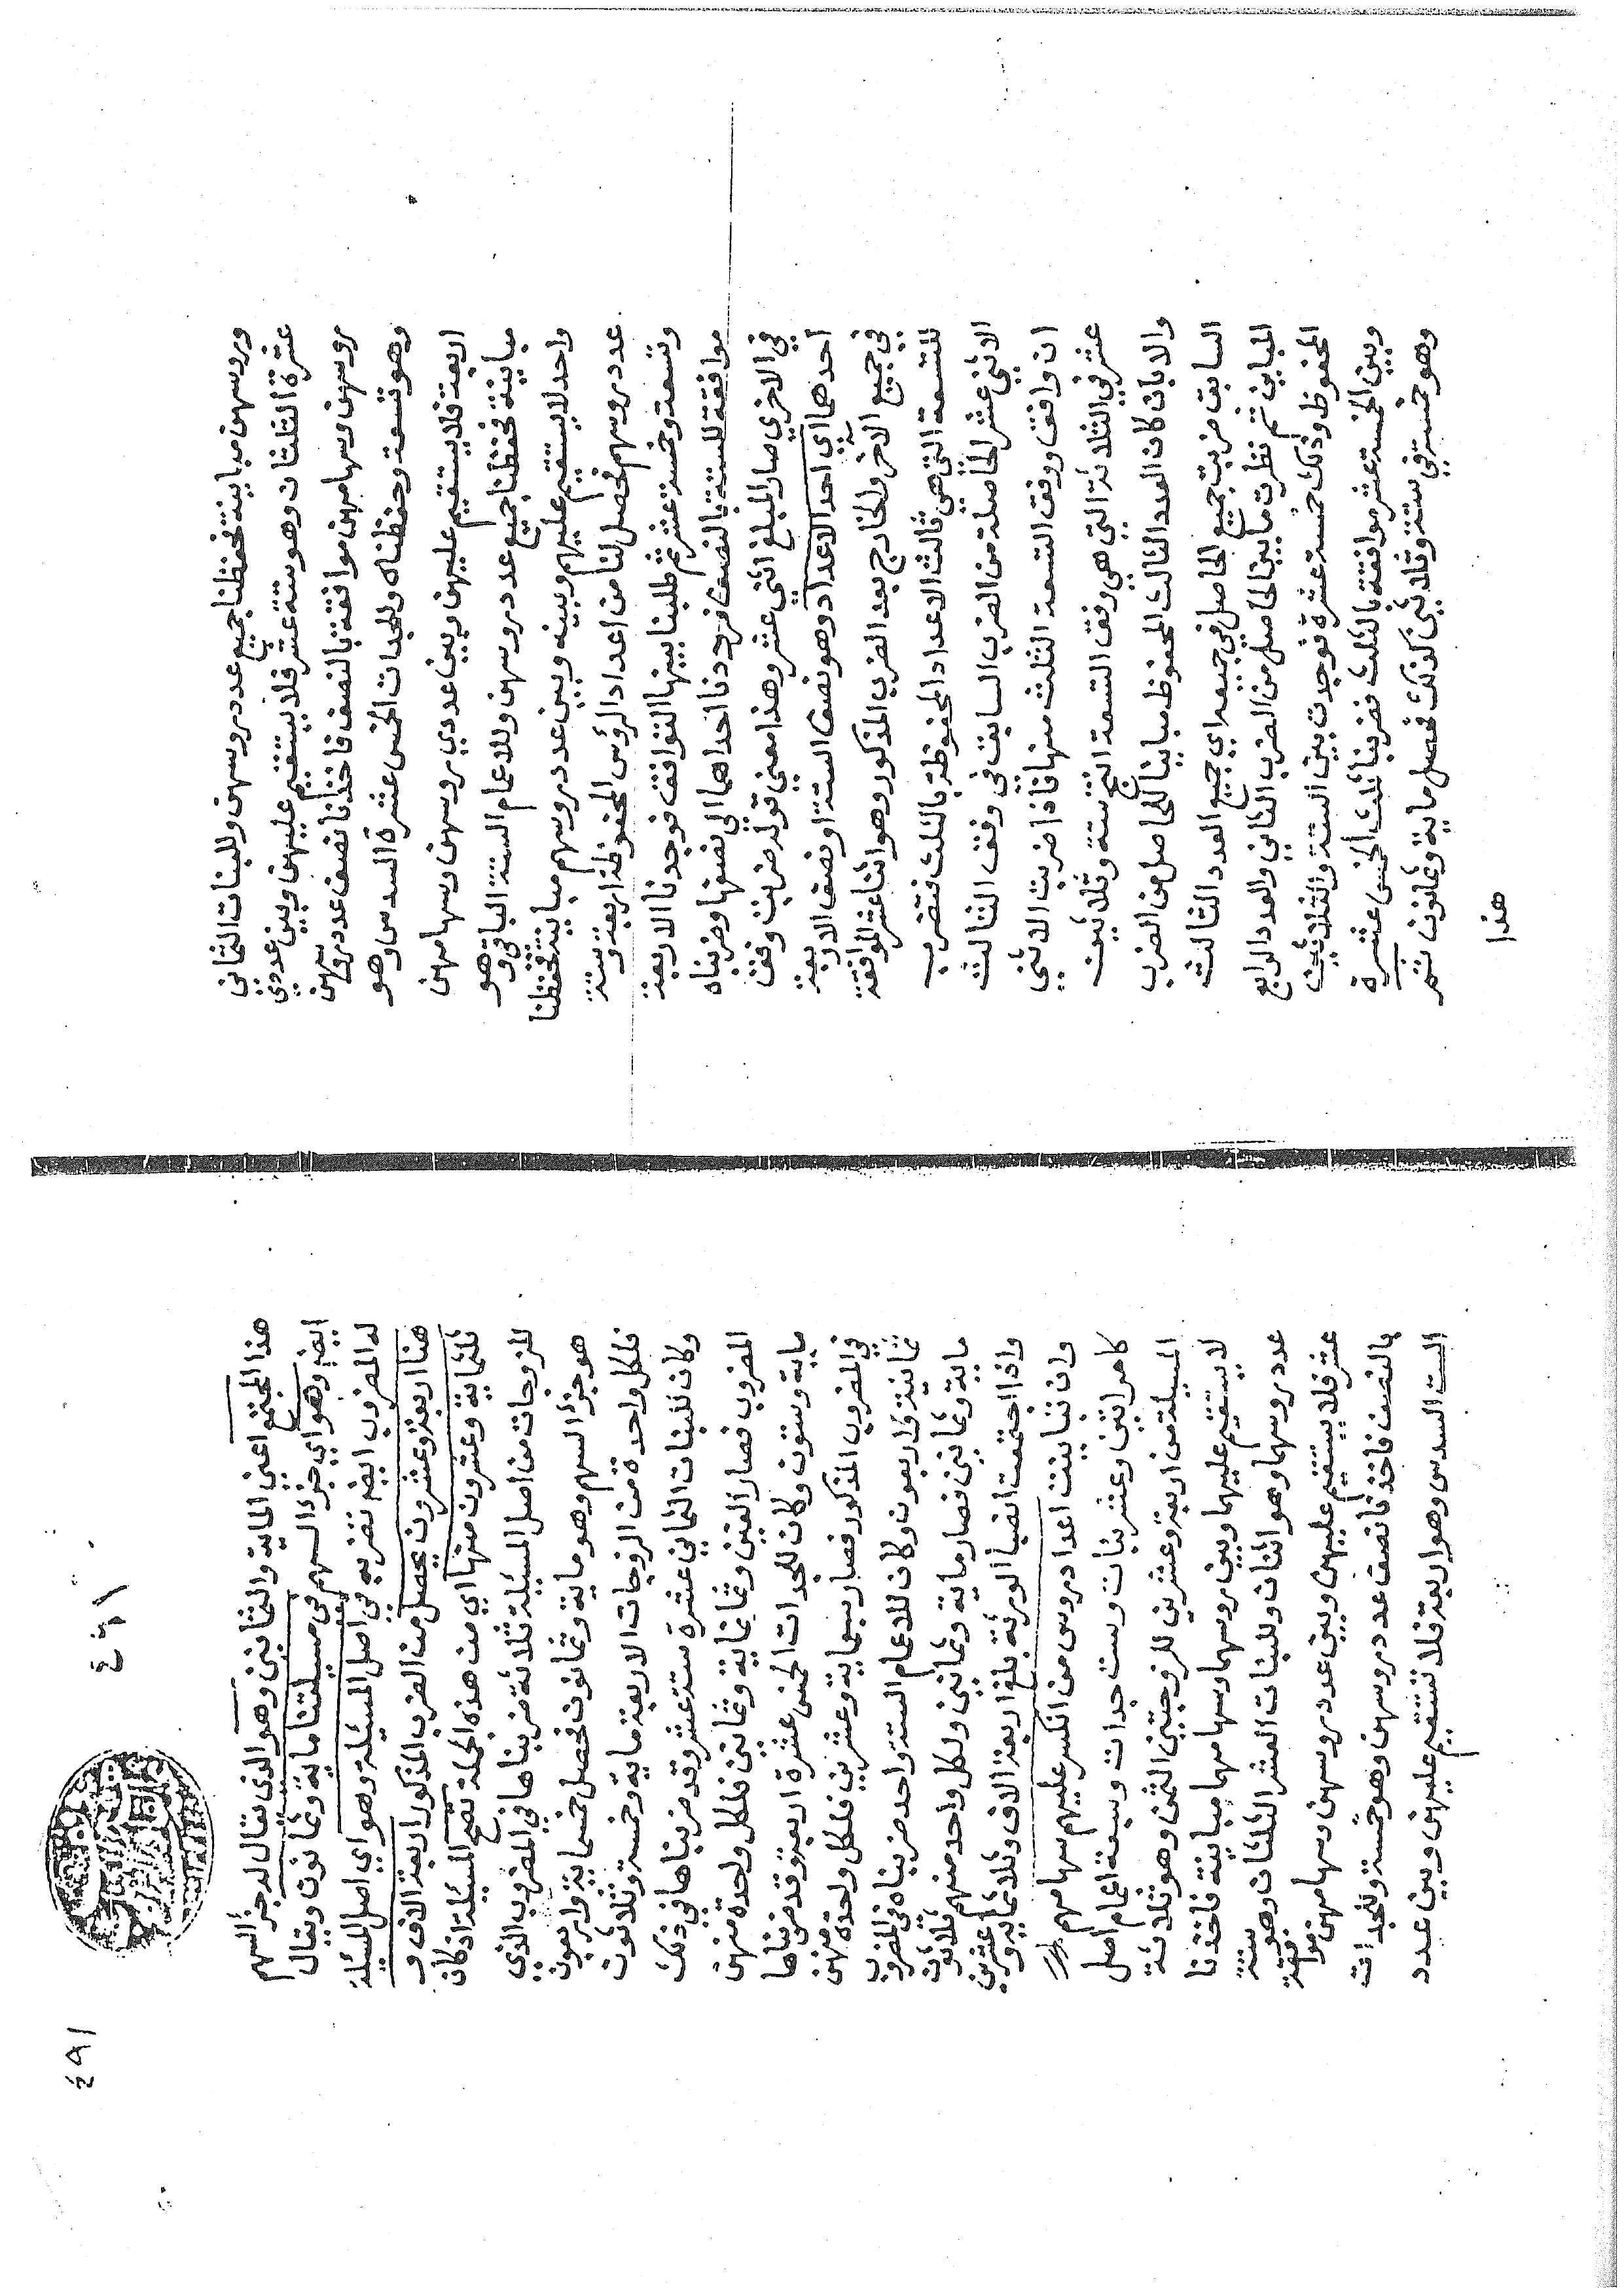 وروسهن مباينة فحفظنا جميع عدد روسهن وللبنات الثماني
عشرة الثلثان وهو ستة عشر فلا يستقيم عليهن وبين عددي
روسهن وسهامهن موافقة بالنصف فاخذنا نصف عدد روسهن
وهو تسعة وحفظناه وللجدات الخمس عشرة السدس وهو
اربعة فلا يستقيم عليهن وبين عددي روسهن وسهامهن
مباينة فحفظنا جميع عدد روسهن وللاعمام الستة الباقي وهو
واحد لا يستقيم عليهم وبينه وبين عدد روسهم مباينة فحفظنا
عدد روسهم فحصل لنا من اعداد الرؤس المحفوظة اربعة وستة
وتسعة وخمسة عشر ثم طلبنا بينها التوافق فوجدنا الاربعة
موافقة للستة بالنصف فرددنا احداهما الى نصفها وضربناه
في الاخرى صار المبلغ اثنى عشر وهذا معنى قوله ضربت وفق
احدهما اي احد الاعداد وهو نصف الستة او نصف الاربعة
في جميع الاخر والخارج بعد الضرب المذكور وهو اثنا عشر الموافقة
للتسعة التي هي ثالث الاعداد المحفوظة بالثلث فتضرب
الاثنى عشر الحاصلة من الضرب السابق في وفق الثالث
ان وافق ووفق التسعة الثلث منها فاذا ضربت الاثنى
عشر في الثلاثة التي هي وفق التسعة انتج ستة وثلاثين
والا بان كان العدد الثالث المحفوظ مباينا للحاصل من الضرب
السابق ضربت جميع الحاصل في جميعه اي جميع العدد الثالث
المباين ثم نظرت ما بين الحاصل من الضرب الثاني والعدد الرابع
المحفوظ وذلك خمسة عشرة فوجدت بين الستة والثلاثين
وبين الخمسة عشر موافقة بالثلث فضربنا ثلث الخمس عشرة
وهو خمسة في ستة وثلاثين كذلك فحصل ماية وثمانون ثم
هذا
٤٩١
٤٣١
هذا المجتمع اعني الماية والثمانين وهو الذي يقال له جزء السهم
ايضا وهو اي جزء السهم في مسيلتنا ماية وثمانون ويقال
له المضروب ايضا تضربه في اصل المسيلة وهو اي اصل المسيلة
هنا اربعة وعشرون يحصل من الضرب المذكور اربعة الاف و
ثلثماية وعشرون منها اي من هذه الجملة تصح المسيلة اذ كان
للزوجات من اصل المسيلة ثلاثة ضربناها في المضروب الذي
هو جزء السهم وهو ماية وثمانون فحصل خمسماية واربعون
فلكل واحدة من الزوجات الاربعة ماية وخمسة وثلاثون
وكان للبنات الثماني عشرة ستة عشر وقد ضربناها في ذلك
المضروب فصار الفين وثمانماية وثمانين فلكل واحدة منهن
ماية وستون وكان للجدات الخمس عشرة اربعة وقد ضربناها
في المضروب المذكور فصار سبعماية وعشرين فلكل واحدة منهن
ثمانية واربعون وكان للاعمام الستة واحد ضربناه في المضروب
ماية وثمانين فصار ماية وثمانين ولكل واحد منهم ثلاثون
واذا اجتمعت انصبا الورثة بلغ اربعة الاف وثلاثماية وعشرين
وان تباينت اعداد روس من انكسر عليهم سهامهم
كامراتين وعشر بنات وست جدات وسبعة اعمام اصل
المسيلة من اربعة وعشرين للزوجتين الثمن وهو ثلاثة
لا يستقيم عليهما وبين روسهما وسهامهما مباينة فاخذنا
عدد روسهما وهو اثنان وللبنات العشر الثلثان وهو ستة
عشر فلا يستقيم عليهن وبين عدد روسهن وسهامهن موافقة
بالنصف فاخذنا نصف عدد روسهن وهو خمسة وللجدات
الست السدس وهو اربعة فلا تستقيم عليهن وبين عدد